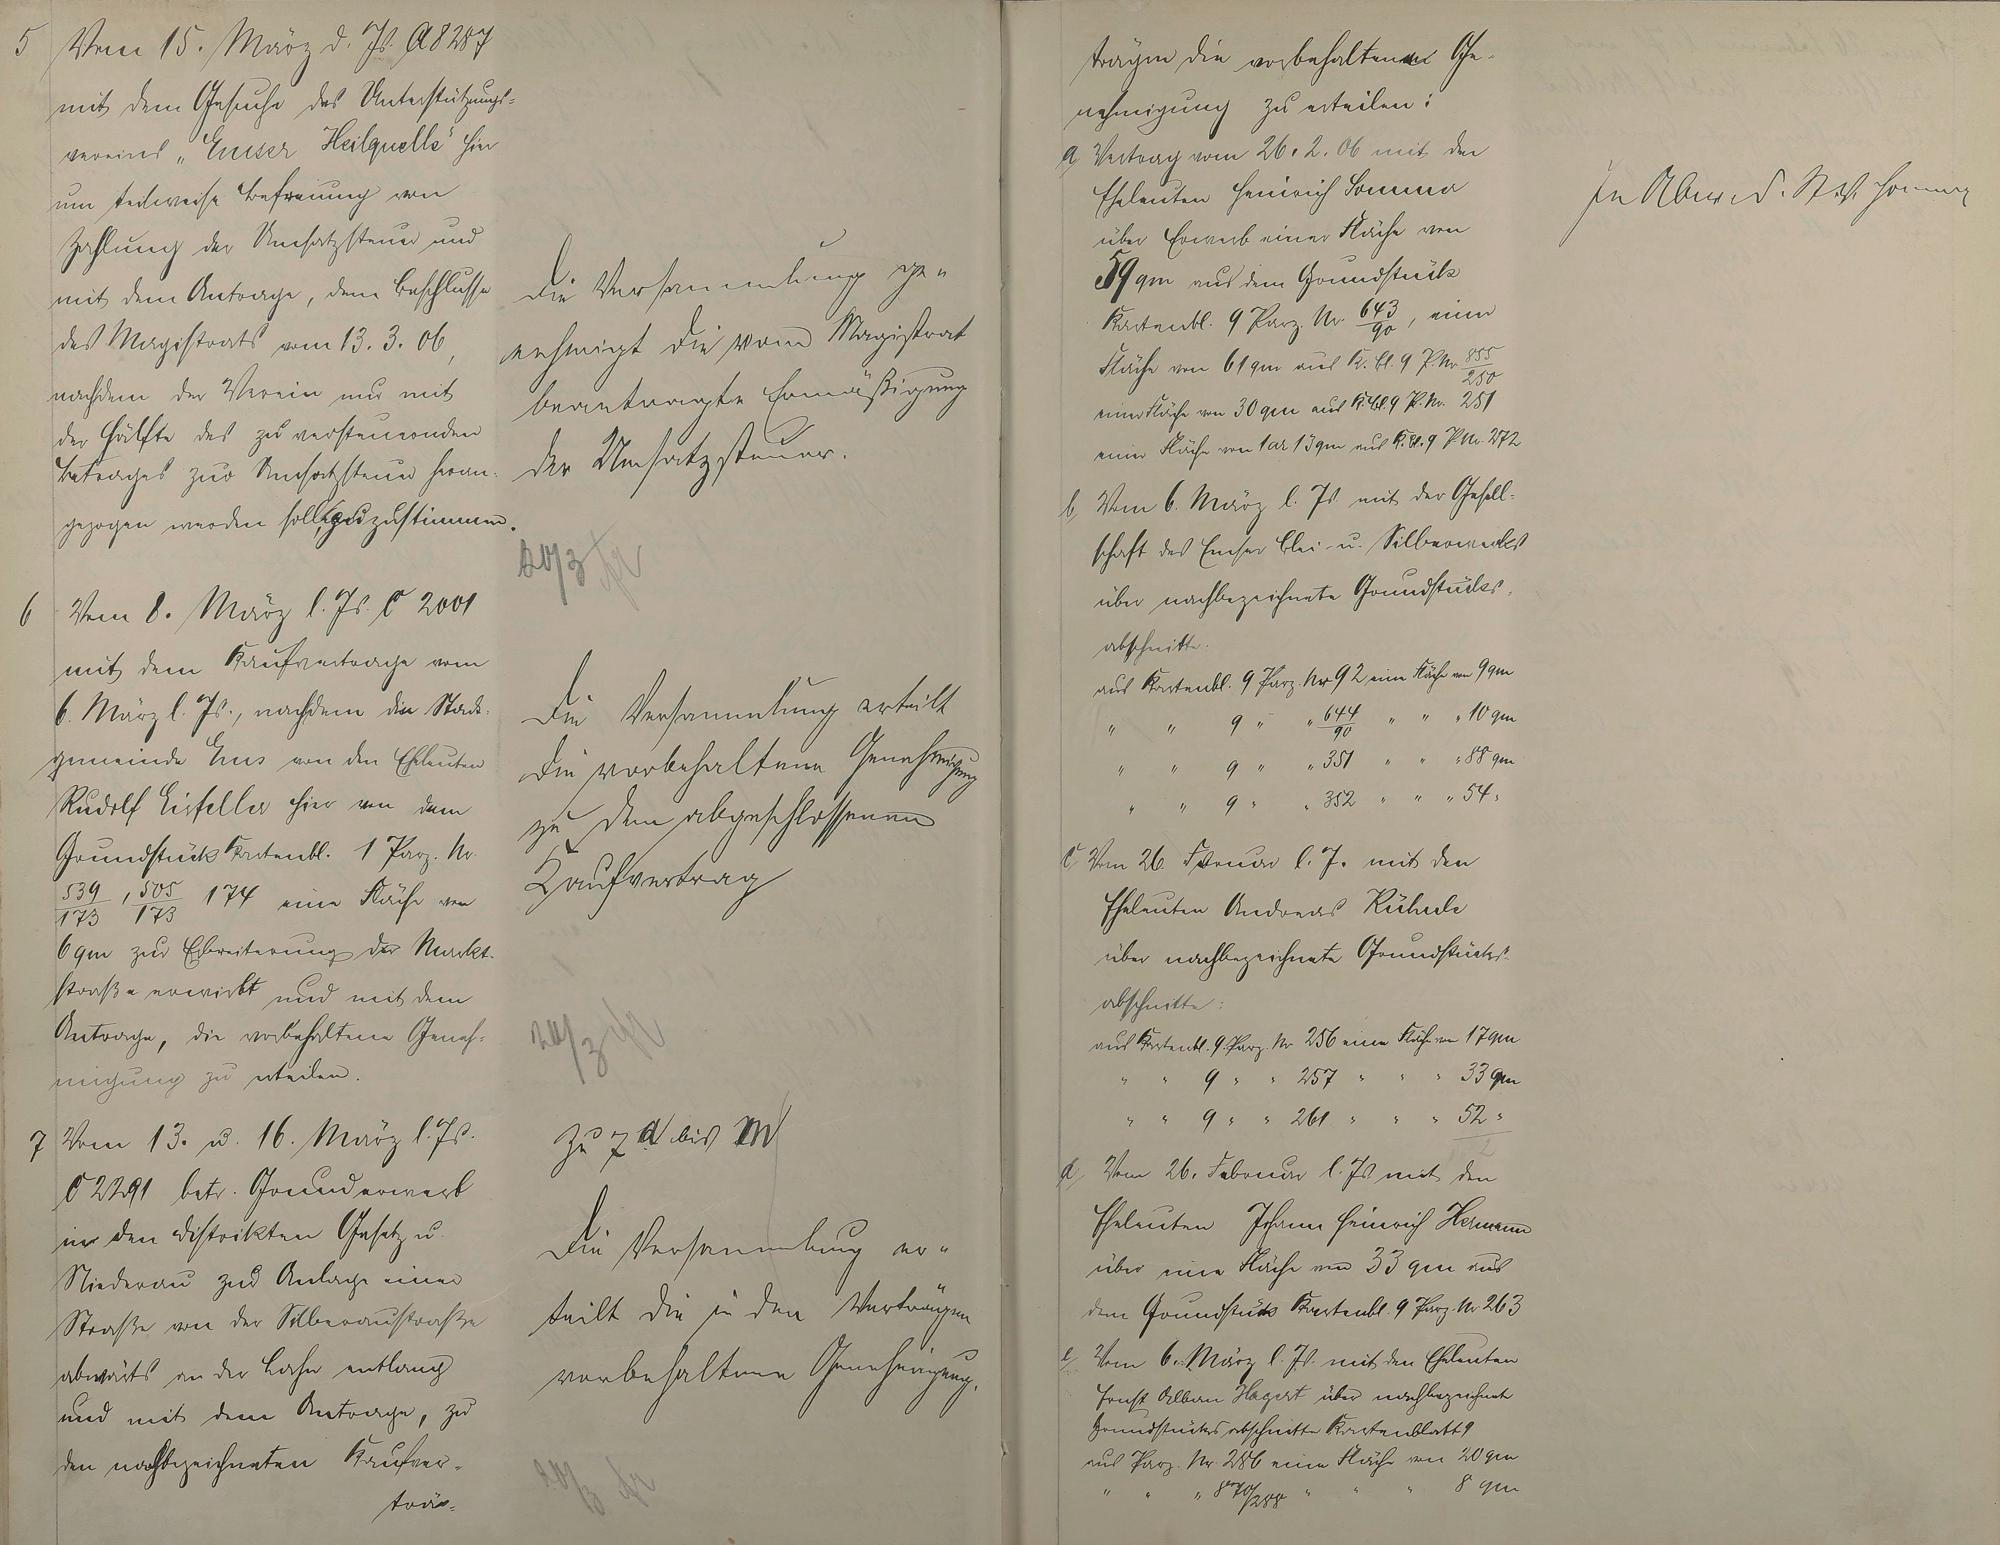 5 Vom 15. März d. Js. A 8287
mit dem Gesuche des Unterstützungs-
vereins „Emser Heilquelle" hier
um teilweise Befreiung von
Zahlung der Umsatzsteuer und
mit dem Antrage, dem Beschlusse
des Magistrats vom 13. 3. 06,
nachdem der Verein nur mit
der Hälfte des zu versteuernden
Betrages zur Umsatzsteuer heran-
gezogen werden soll, zuzustimmen.
Die Versammlung ge-
nehmigt die vom Magistrat
beantragte Ermäßigung
der Umsatzsteuer.
20/3
6 Vom 8. März l. Js. C 2001
mit dem Kaufvertrage vom
6. März l. Js., nachdem die Stadt-
gemeinde Ems von den Eheleuten
Rudolf Eisfeller hier von dem
Grundstück Kartenbl. 1 Parz. Nr.
539/173, 505/173 174 eine Fläche von
6 qm zur Erbreiterung der Markt-
straße erwirbt und mit dem
Antrage, die vorbehaltene Geneh-
migung zu erteilen.
Die Versammlung erteilt
die vorbehaltene Genehmigung
zu dem abgeschlossenen
Kaufvertrag
20/3
7 Vom 13. u. 16. März l. Js.
C 2291 betr. Grunderwerb
in den Distrikten Gesetz u.
Niederau zur Anlage einer
Straße von der Silberaustraße
abwärts an der Lahn entlang
und mit dem Antrage, zu
den nachbezeichneten Kaufver-
träg-
Zu 7 a bis m
Die Versammlung er-
teilt die in den Verträgen
vorbehaltene Genehmigung.
20/3
trägen die vorbehaltene Ge-
nehmigung zu erteilen:
a, Vertrag vom 26. 2. 06 mit den
Eheleuten Heinrich Sommer
über Erwerb einer Fläche von
59 qm aus dem Grundstück
Kartenbl. 9 Parz. Nr. 643/90, einer
Fläche von 61 qm aus K. Bl. 9 P. Nr. 855/250
einer Fläche von 30 qm aus K. Bl. 9 P. Nr. 251
einer Fläche von 1 ar 13 qm aus K. Bl. 9 P. Nr. 272
b, Vom 6. März l. Js mit der Gesell-
schaft des Emser Blei- u. Silberwerks
über nachbezeichnete Grundstücks-
abschnitte:
aus Kartenbl. 9 Parz. Nr 92 eine Fläche von 9 qm
" " 9 " " 644/90 " " " 10 qm
" " 9 " " 351 " " " 88 qm
" " 9 " " 352 " " " 54 "
c, Vom 26. Februar l. J. mit den
Eheleuten Andreas
über nachbezeichnete Grundstücks-
abschnitte:
aus Kartenbl. 9 Parz. Nr 256 eine Fläche von 17 qm
" " 9 " " 257 " " " 33 qm
" " 9 " " 261 " " " 52 "
d, Vom 26. Februar l. Js mit den
Eheleuten Johann Heinrich Hermann
über eine Fläche von 33 qm aus
dem Grundstück Kartenbl. 9 Parz. Nr 263
e, Vom 6. März l. Js. mit den Eheleuten
Ernst Alban Hagert über nachbezeichnete
Grundstücksabschnitte Kartenblatt 9
aus Parz. Nr 286 eine Fläche von 20 qm
" " " 870/288 " " " 8 qm